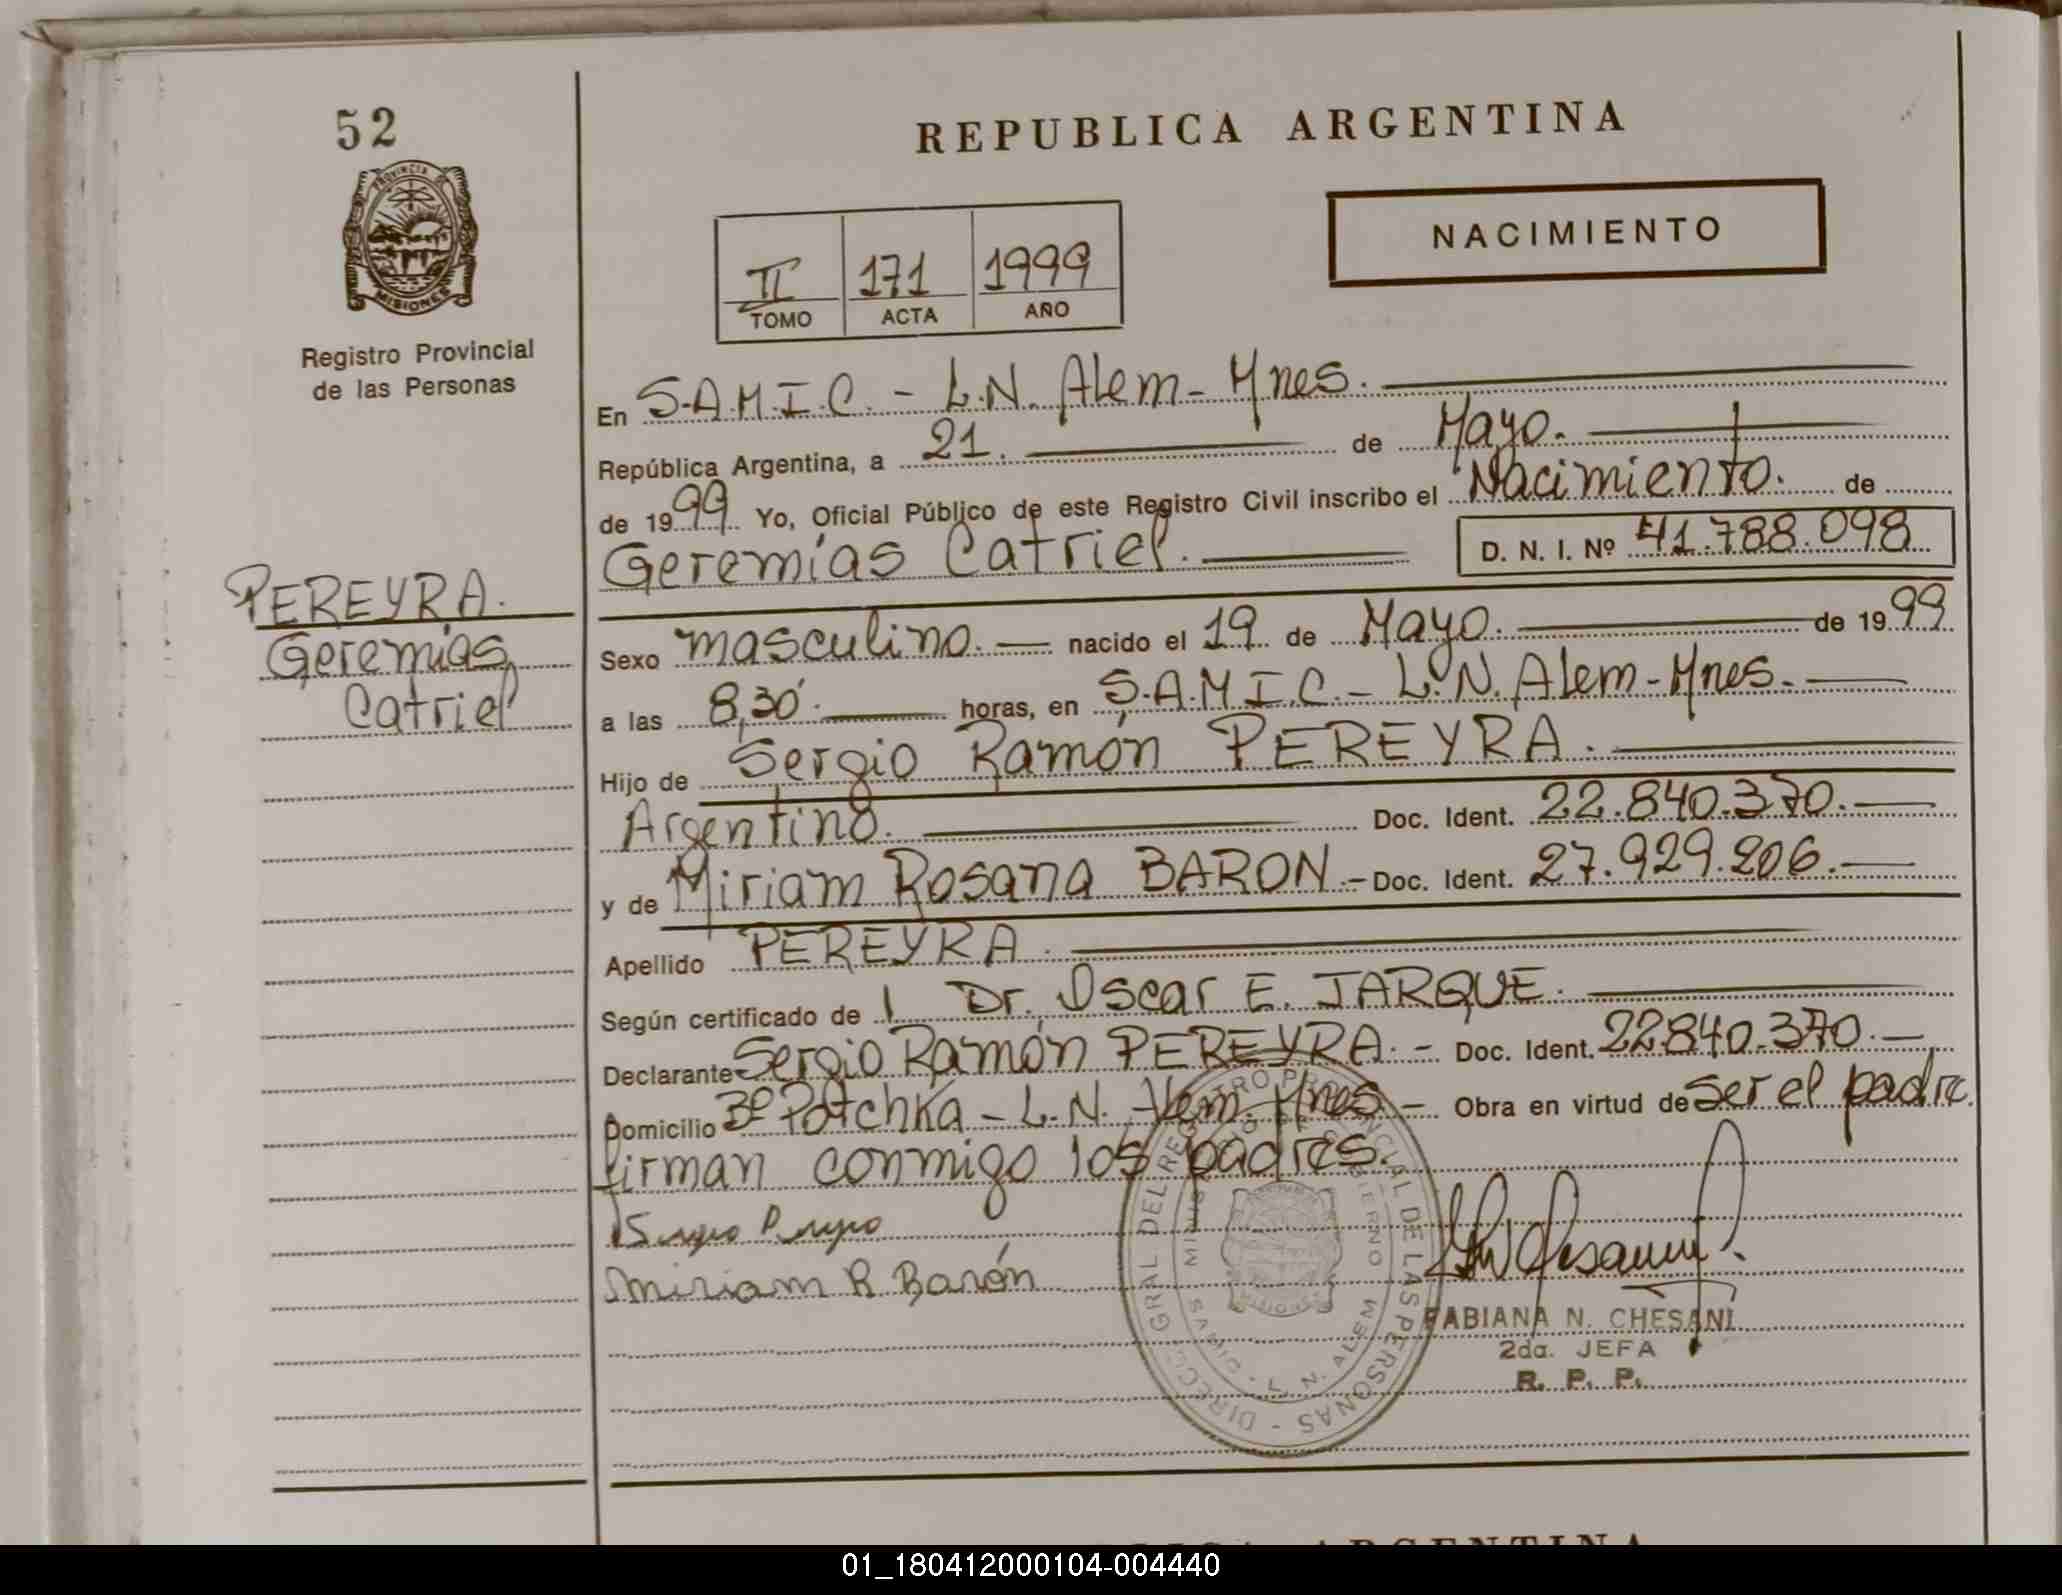 52
PROVINCIA DE
MISIONES
Registro Provincial
de las Personas
REPUBLICA ARGENTINA
NACIMIENTO
II 171 1999
TOMO ACTA AÑO
En S.A.M.I.C. - L.N. Alem - Mnes.
República Argentina, a 21. de Mayo.
de 1999 Yo, Oficial Público de este Registro Civil inscribo el Nacimiento. de
Geremías Catriel. D. N. I. Nº 41.788.098
PEREYRA.
Geremías
Catriel
Sexo masculino. nacido el 19 de Mayo. de 1999
a las 8,30'. horas, en S.A.M.I.C. - L.N. Alem - Mnes.
Hijo de Sergio Ramón PEREYRA.
Argentino. Doc. Ident. 22.840.370.
y de Miriam Rosana BARON.- Doc. Ident. 27.929.206.
Apellido PEREYRA.
Según certificado de 1 Dr. Oscar E. JARQUE.
Declarante Sergio Ramón PEREYRA.- Doc. Ident. 22840.370.-
Domicilio Bº Potchka - L.N. Alem. Mnes - Obra en virtud de ser el padre.
firman conmigo los padres.
Miriam R Barón
DIRECC. GRAL DEL REGISTRO PROVINCIAL DE LAS PERSONAS -
MINISTERIO DE GOBIERNO
SAMIC - L. N. ALEM
MISIONES
FABIANA N. CHESANI
2da. JEFA
R. P. P.
REPUBLICA ARGENTINA
01_180412000104-004440